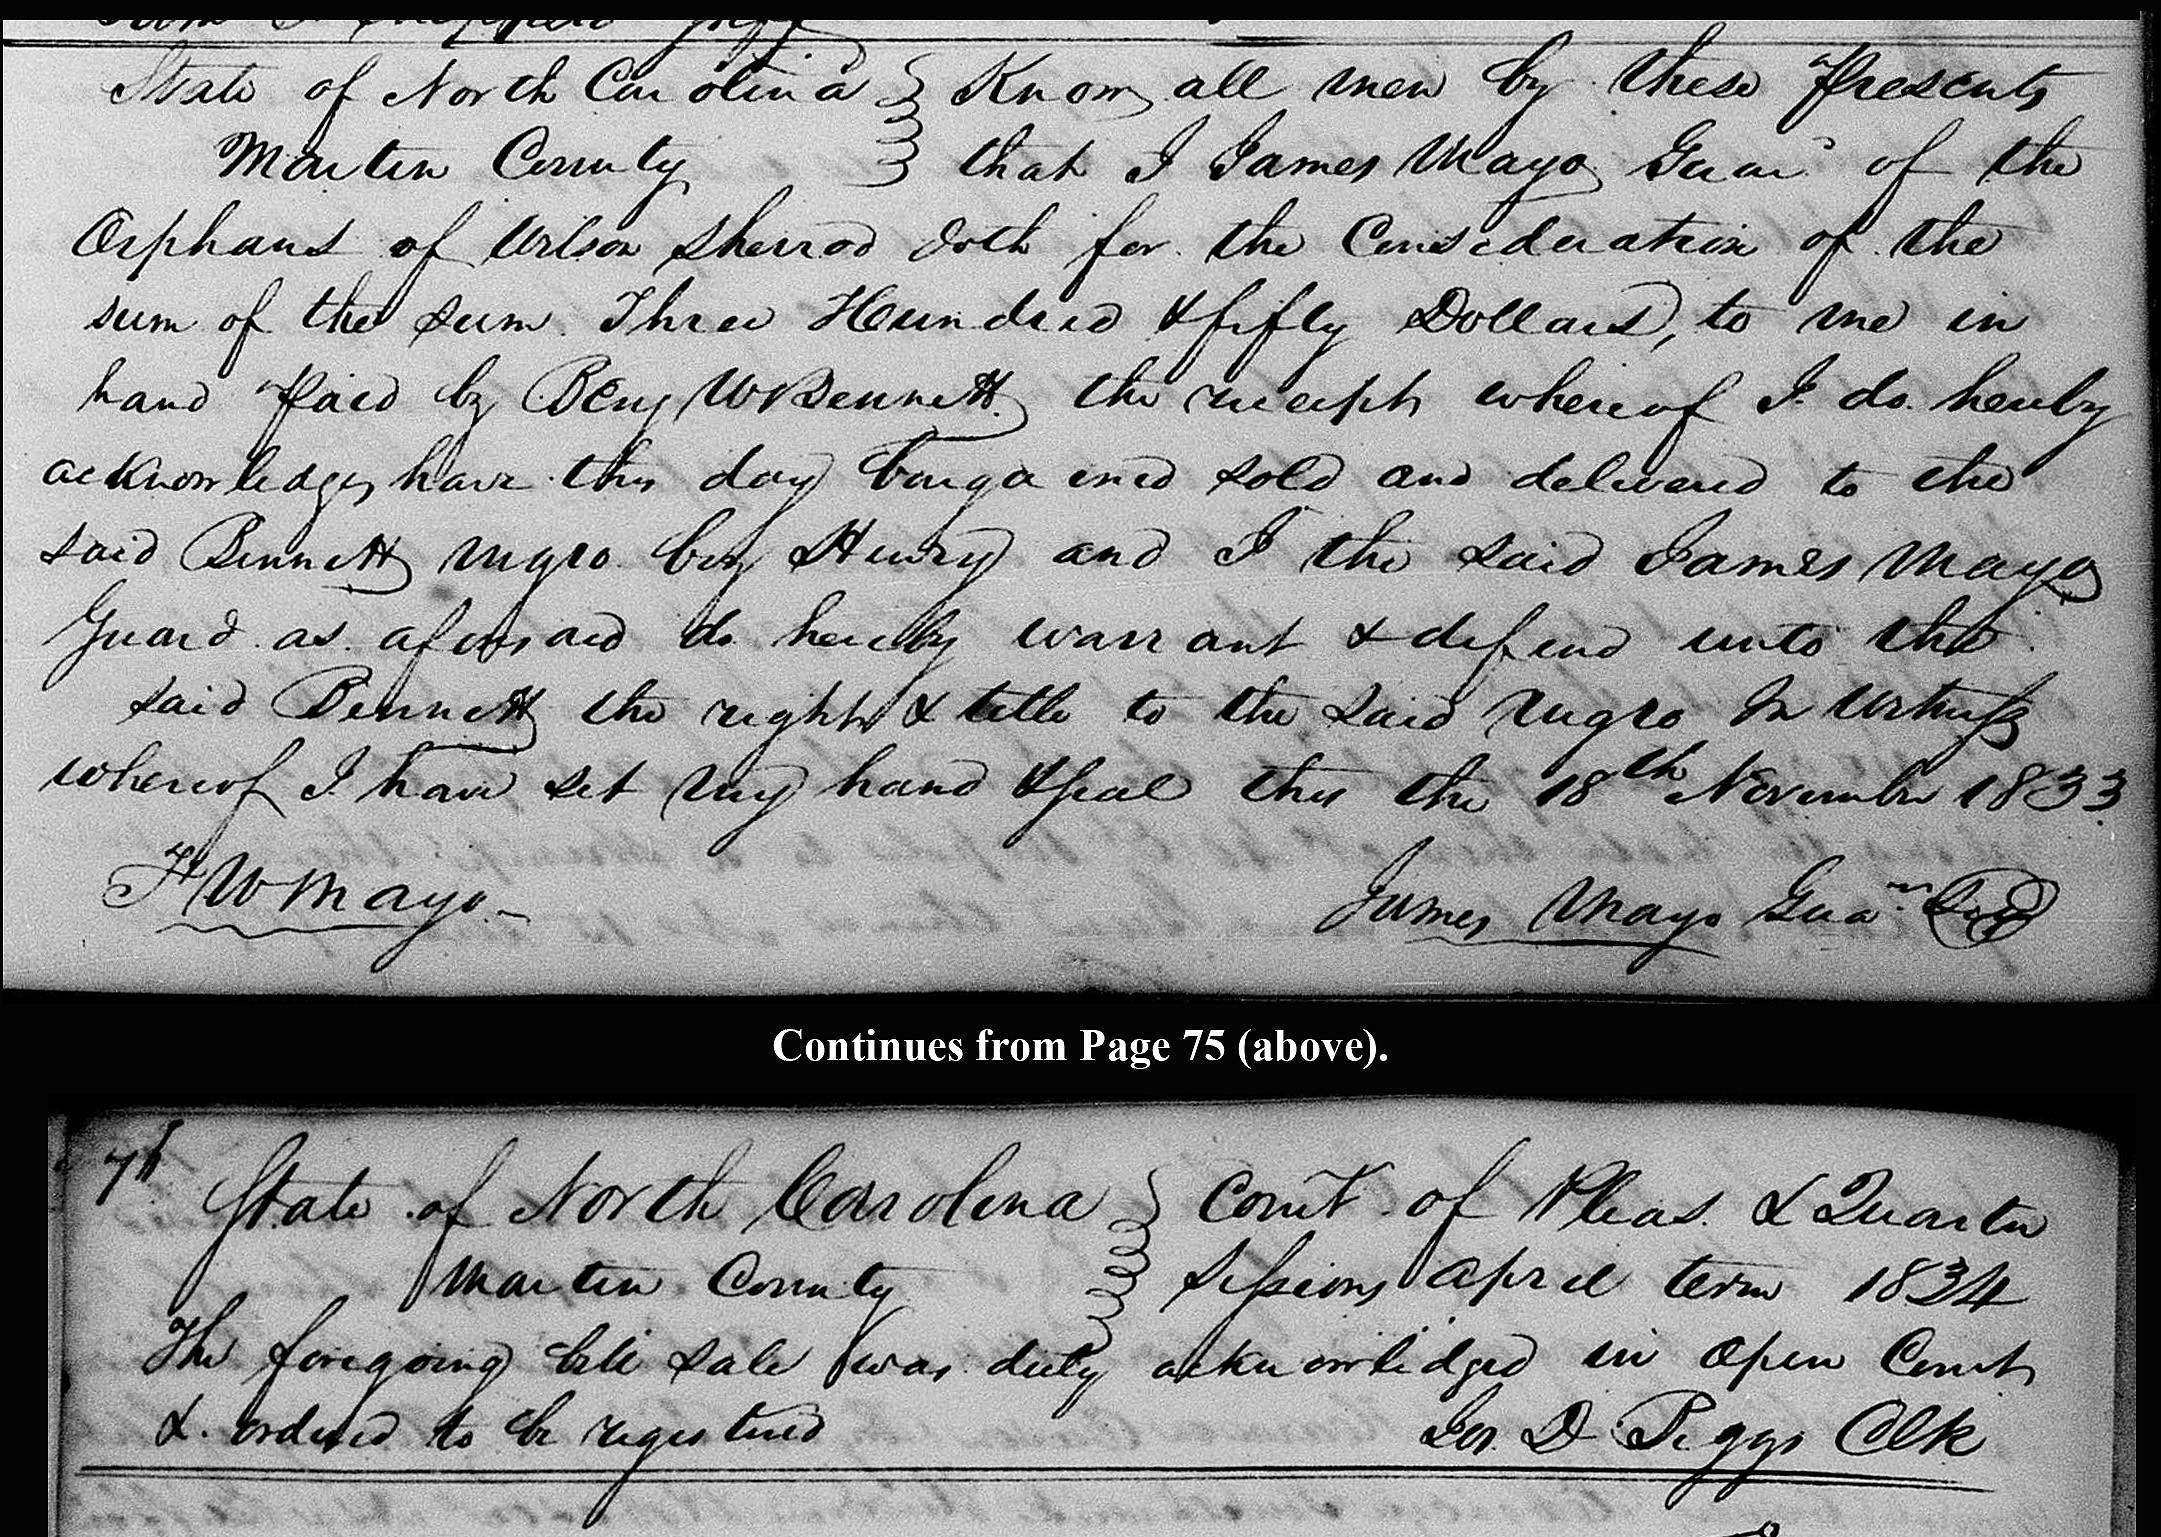 State of North Carolina Know all men by these Presents
Martin County that I James Mayo Guar.n of the
Orphans of Wilson Sherrod doth for the Consideration of the
sum of the sum Three Hundred & fifty Dollars, to me in
hand Paid by Benj W Bennett the receipt whereof I do hereby
acknowledge, have this day bargained sold and delivered to the
said Bennett negro boy Henry and I the said James Mayo
Guard as aforesaid do hereby warrant & defend unto the
said Bennett the right & title to the said negro In Witness
whereof I have set my hand & seal this the 18th November 1833.
W Mayo
James Mayo Guan Seal
Continues from Page 75 (above).
State of North Carolina Court of Pleas. & Quarter
Martin County Sessions April term 1834
The foregoing bill sale was duly acknowledged in open Court
&. ordered to be registered Jos. D Biggs Clk